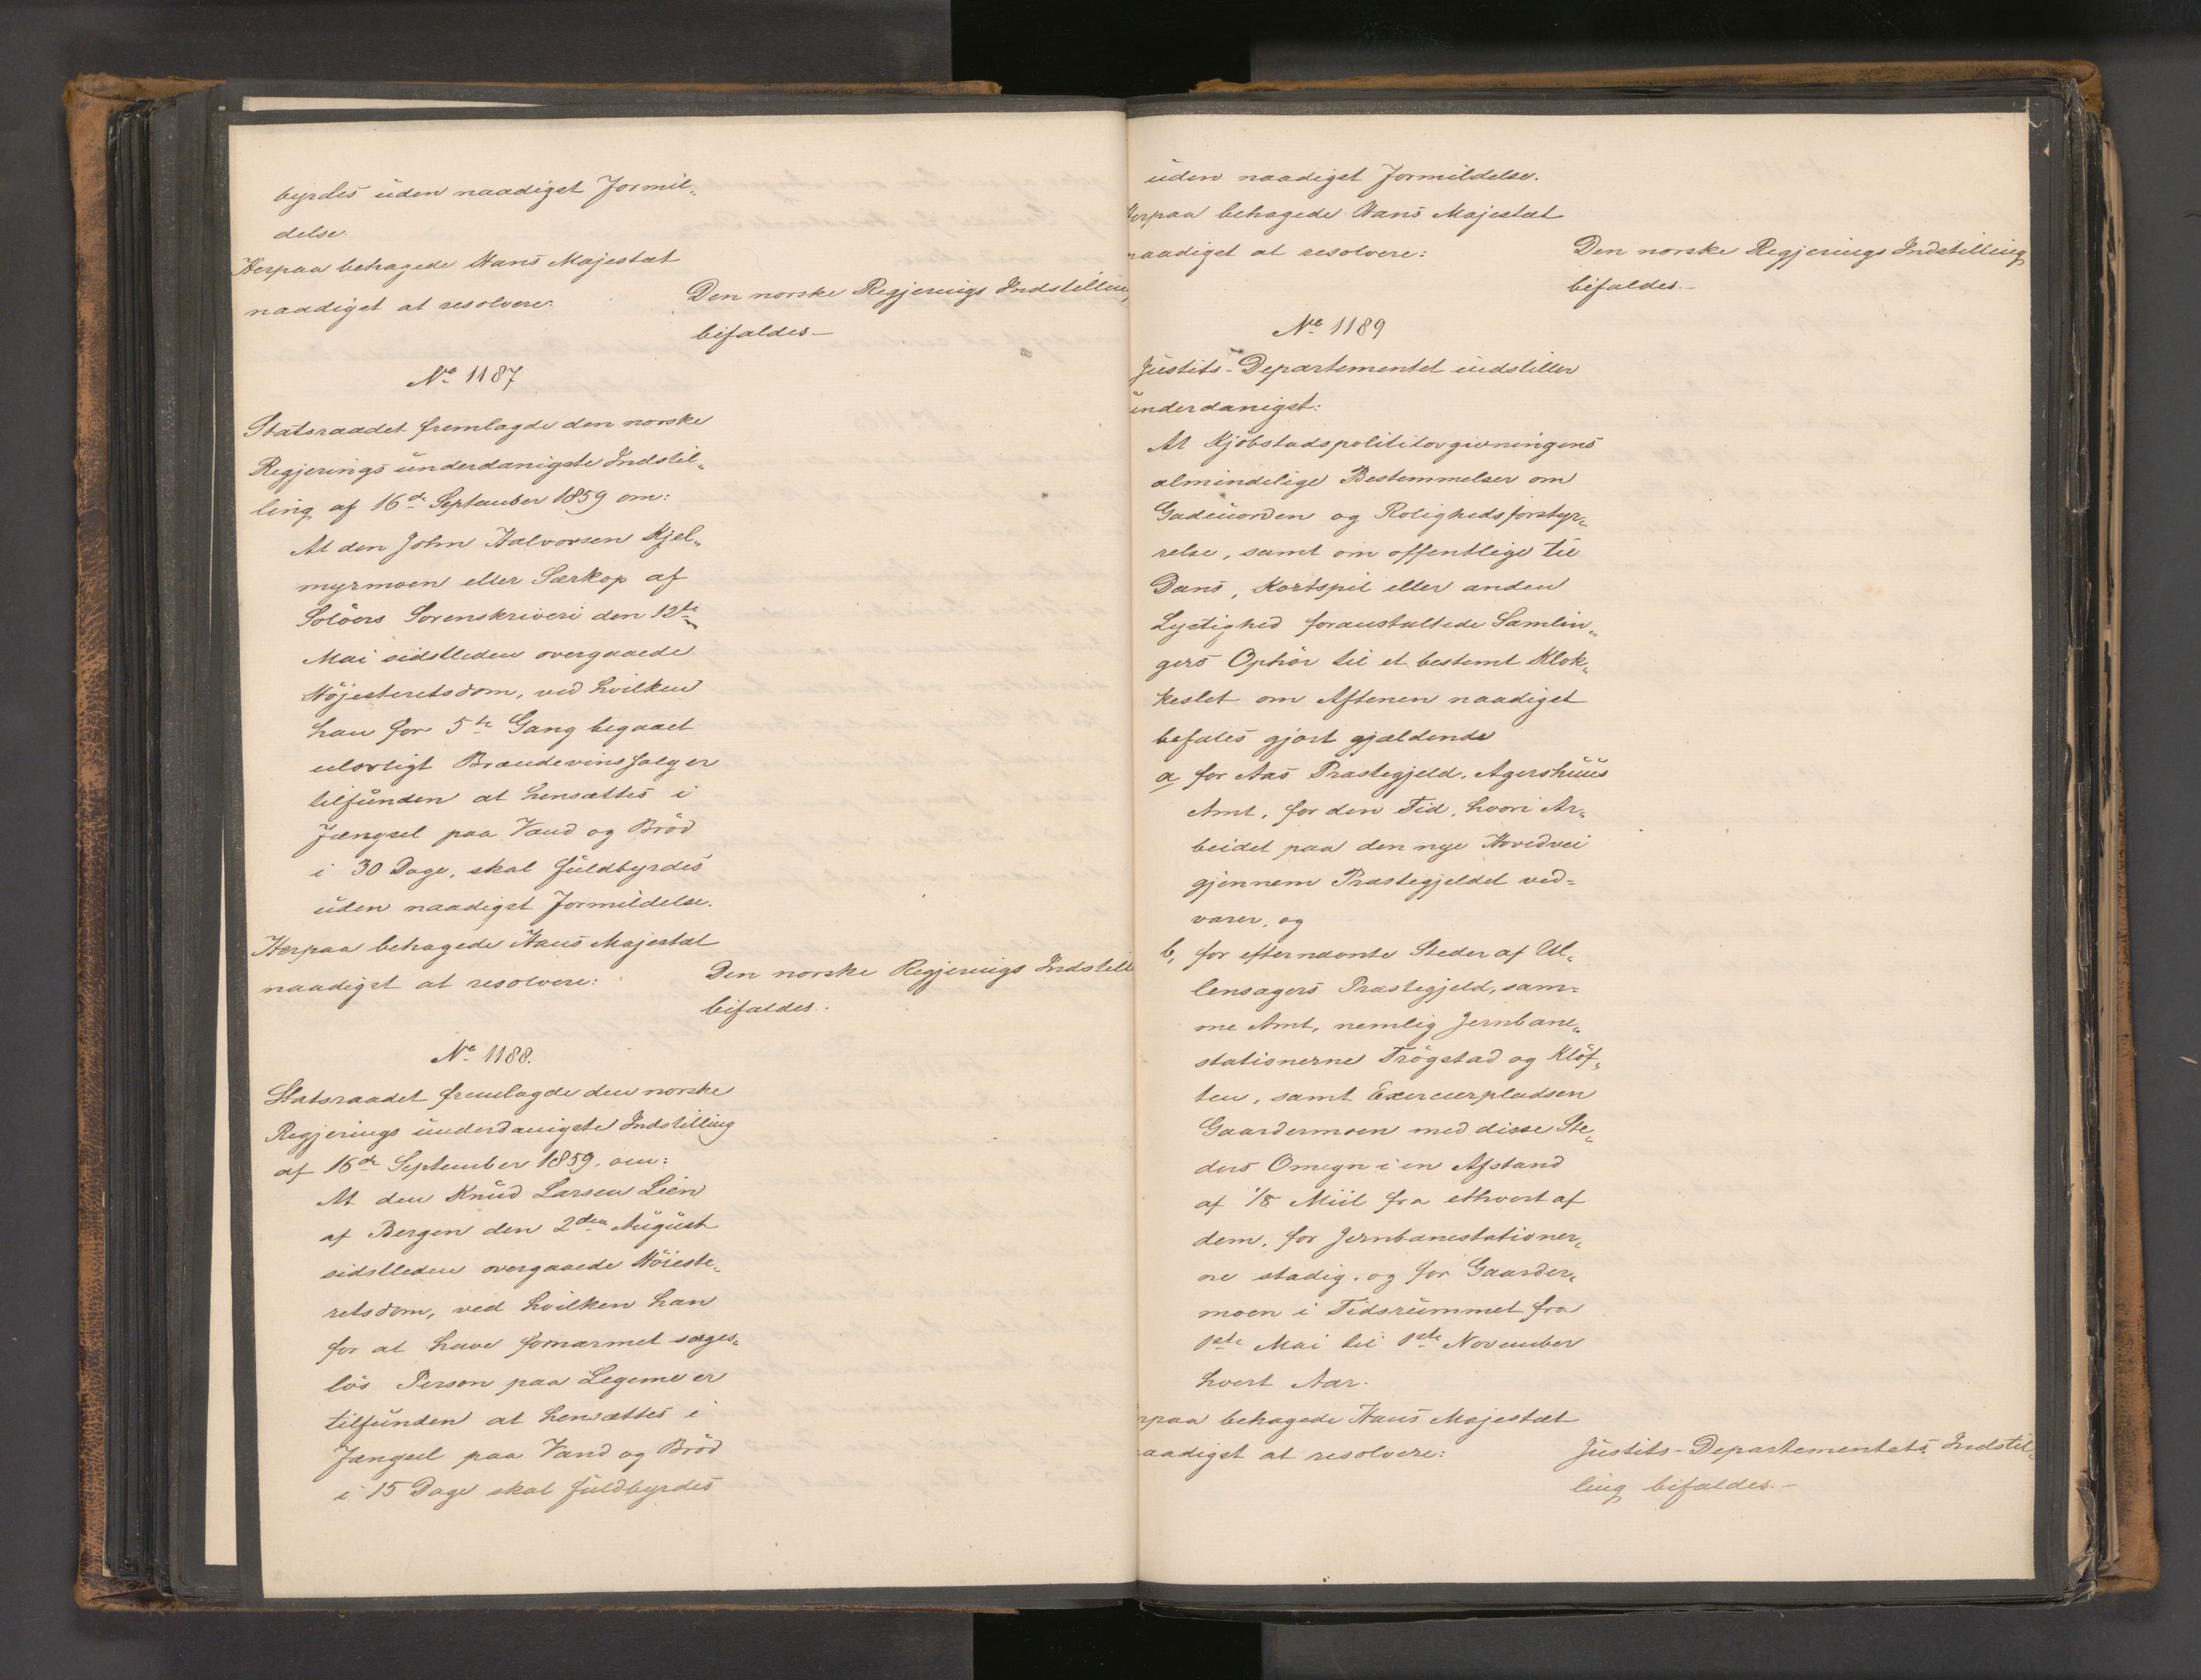 byrdes uden naadigst Formil„
delse.
Herpaa behagede Hans Majestæt
naadigst at resolvere:
Den norske Regjerings Indstilling
bifaldes—
No 1187
Statsraadet fremlagde den norske
Regjerings underdanigste Indstil„
ling af 16de September 1859 om:
At den John Halvorsen Kjel„
myrmoen eller Særkop af
Solöers Sorenskriveri den 12te
Mai sidstleden overgaaede
Höjesteretsdom, ved hvilken
han for 5te Gang begaaet
ulovligt Brændevinssalg er
tilfunden at hensættes i
Fængsel paa Vand og Bröd
i 30 Dage, skal fuldbyrdes
uden naadigst Formildelse.
Herpaa behagede Hans Majestæt
naadigst at resolvere:
Den norske Regjerings Indstill
bifaldes.
No 1188.
Statsraadet fremlagde den norske
Regjerings underdanigste Indstilling
af 16de September 1859. om:
At den Knud Larsen Lien
af Bergen den 2den August
sidstleden overgaaede Höieste„
retsdom, ved hvilken han
for at have fornærmet sages„
lös Person paa Legeme er
tilfunden at hensættes i
Fængsel paa Vand og Bröd
i 15 Dage skal fuldbyrdes
uden naadigst Formildelse.
Herpaa behagede Hans Majestæt
naadigst at resolvere:
Den norske Regjerings Indstilling
bifaldes.—
No 1189
Justits-Departementet indstiller
underdanigst:
At Kjöbstadspolitilovgivningens
almindelige Bestemmelser om
Gadeuorden og Rolighedsforstyr„
relse, samt om offentlige til
Dans, Kortspil eller anden
Lystighed foranstaltede Samlin„
gers Ophör til et bestemt Klok„
keslet om Aftenen naadigst
befales gjort gjældende
a for Aas Præstegjeld, Agershuus
Amt, for den Tid, hvori Ar„
beidet paa den nye Hovedvei
gjennem Præstegjeldet ved=
varer, og
b, for efternævnte Steder af Ul„
lensagers Præstegjeld, sam=
me Amt, nemlig Jernbane„
stationerne Trögstad og Klöf„
ten, samt Exercerpladsen
Gaardermoen med disse Ste„
ders Omegn i en Afstand
af 1/8 Miil fra ethvert af
dem, for Jernbanestationer„
ne stadig, og for Gaarder„
moen i Tidsrummet fra
1ste Mai til 1ste November
hvert Aar.
rpaa behagede Hans Majestæt
aadigst at resolvere:
Justits-Departementets Indstil„
ling bifaldes.—